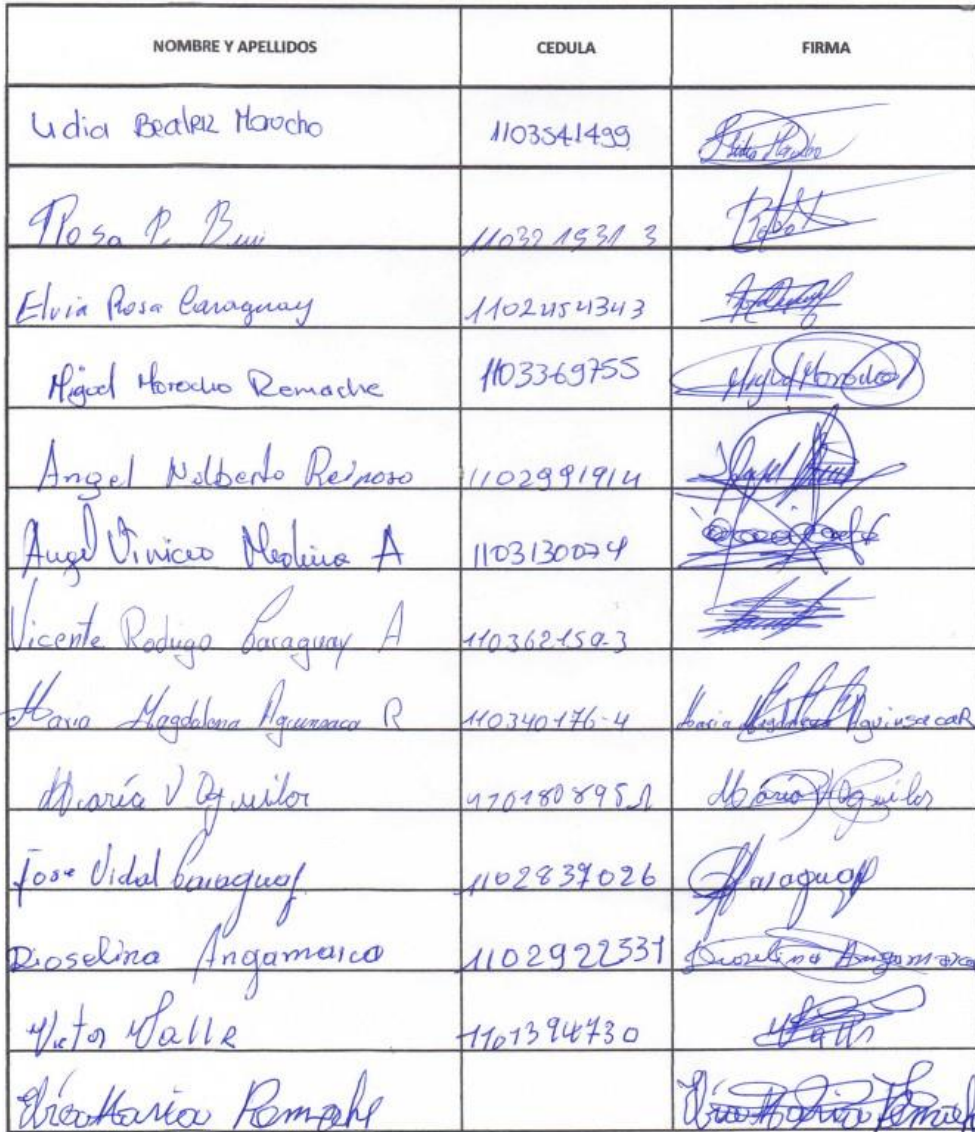 NOMBRE Y APELLIDOS CEDULA FIRMA
Lidia Beatriz Morocho 1103541499
Rosa P. 110321531 3
Elvia Rosa Caraguay 1102454343
Miguel Morocho Remache 1103369755 Miguel Morocho
Angel Nolberto Reinoso 1102991914 Angel
Angel Vinicio Medina A 1103130074
Vicente Rodrigo Caraguay A 110362150-3
Maria Magdalena Aguinsaca R 110340176-4 Maria Magdalena Aguinsaca R
María V Aguilar María V Aguilar
Jose Vidal Caraguay 1102837026 Caraguay
Dioselina Angamarca 1102922331 Dioselina Angamarca
Victor Valle 1101394730 Valle
Maria Maria